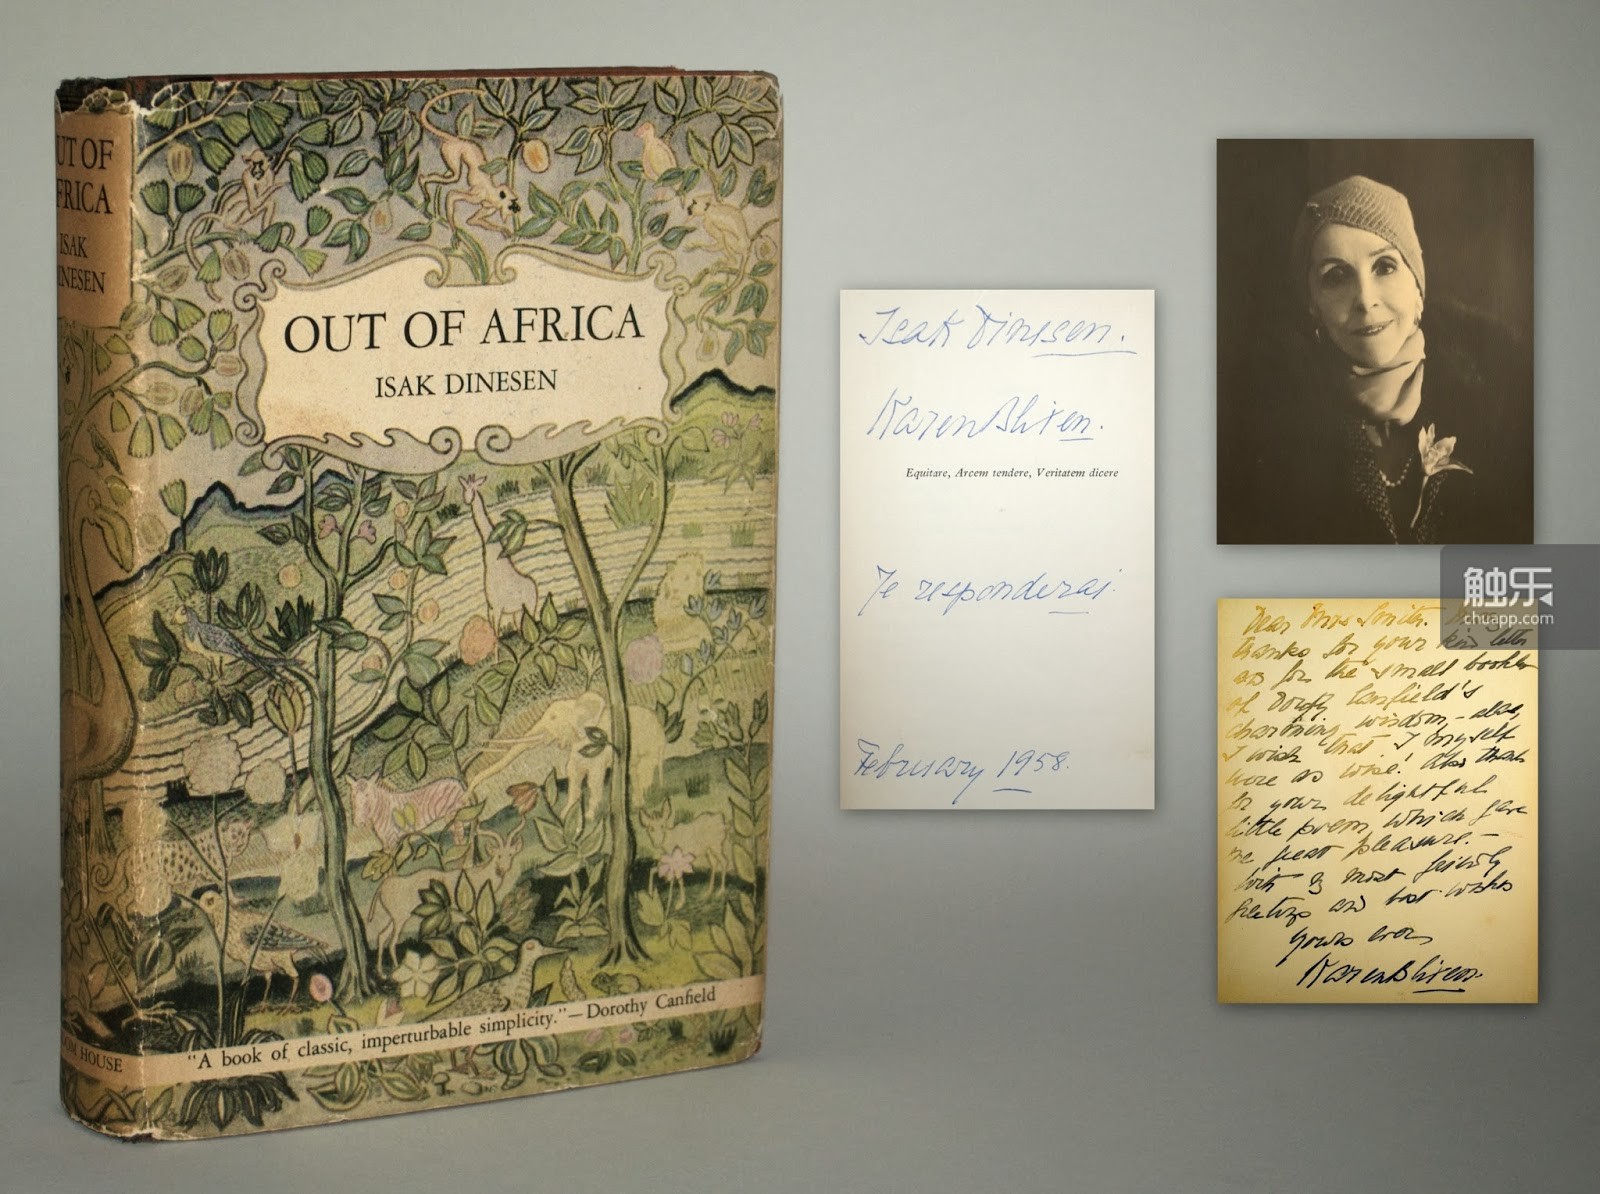 UT OF
FRICA
ISAK
INESEN
OM HOUSE
OUT OF AFRICA
ISAK DINESEN
"A book of classic, imperturbable simplicity."—Dorothy Canfield
Isak Dinesen.
Karen Blixen.
Equitare, Arcem tendere, Veritatem dicere
Je responderai.
February 1958.
触乐
chuapp.com
Dear Mrs Smith.
thanks for your kind letter
as for the small booklet
of Dorothy Canfield's
charming wisdom, - alas,
I wish that I myself
were as wise! Also thanks
for your delightful
little poem, which gave
me great pleasure. -
With my most friendly
greetings and best wishes
yours ever
Karen Blixen.